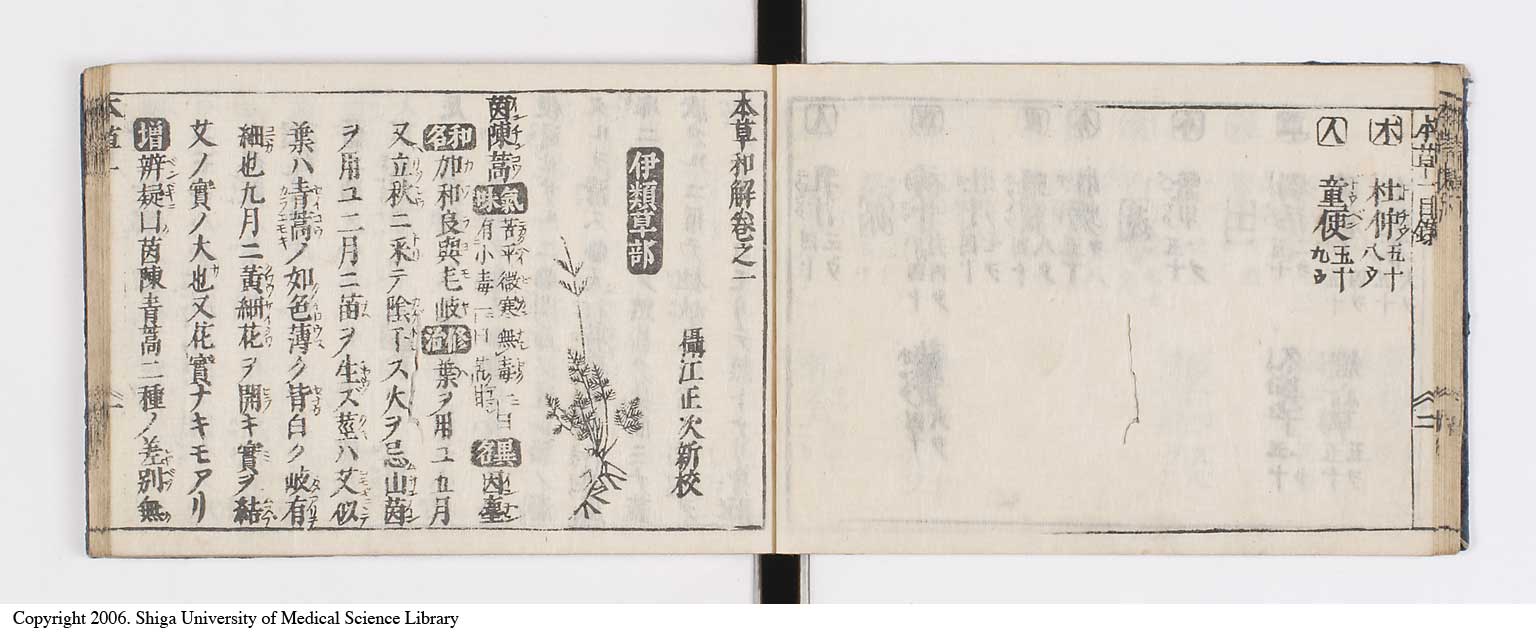 本草一目録
木 杜仲 五十八ウ
人 童便 五十九ウ
二
本草和解巻之一
攝江正次新校
伊類草部
茵陳蒿 氣味 苦平微寒無毒
有小毒 異名 因塵
和名 加和良與毛岐 修治 葉ヲ用ユ五月
又立秋ニ采テ陰干ス火ヲ忌山茵
ヲ用ユ二月ニ苗ヲ生ズ莖ハ艾似
葉ハ青蒿ノ如色薄ク皆白ク岐有
細也九月ニ黄細花ヲ開キ實ヲ結
艾ノ實ノ大也又花實ナキモアリ
増 辨疑曰茵陳青蒿二種ノ差別無
本草一
一
Copyright 2006. Shiga University of Medical Science Library